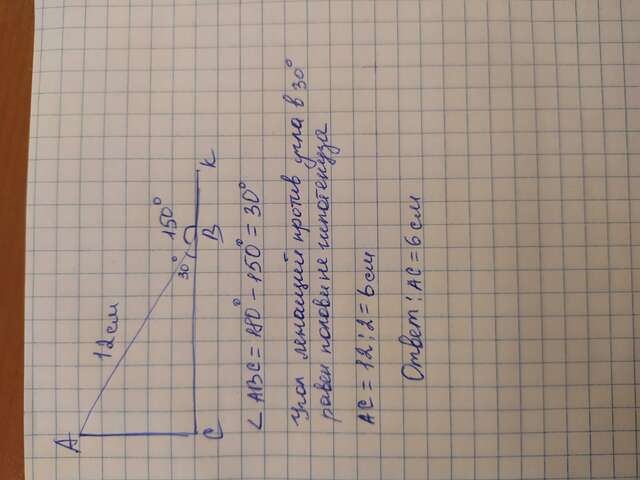 A
12 см
30°
150°
C
B
K
∠ABC = 180° - 150° = 30°
Угол лежащий против угла в 30°
равен половине гипотенуза
AC = 12 : 2 = 6 см
Ответ: AC = 6 см